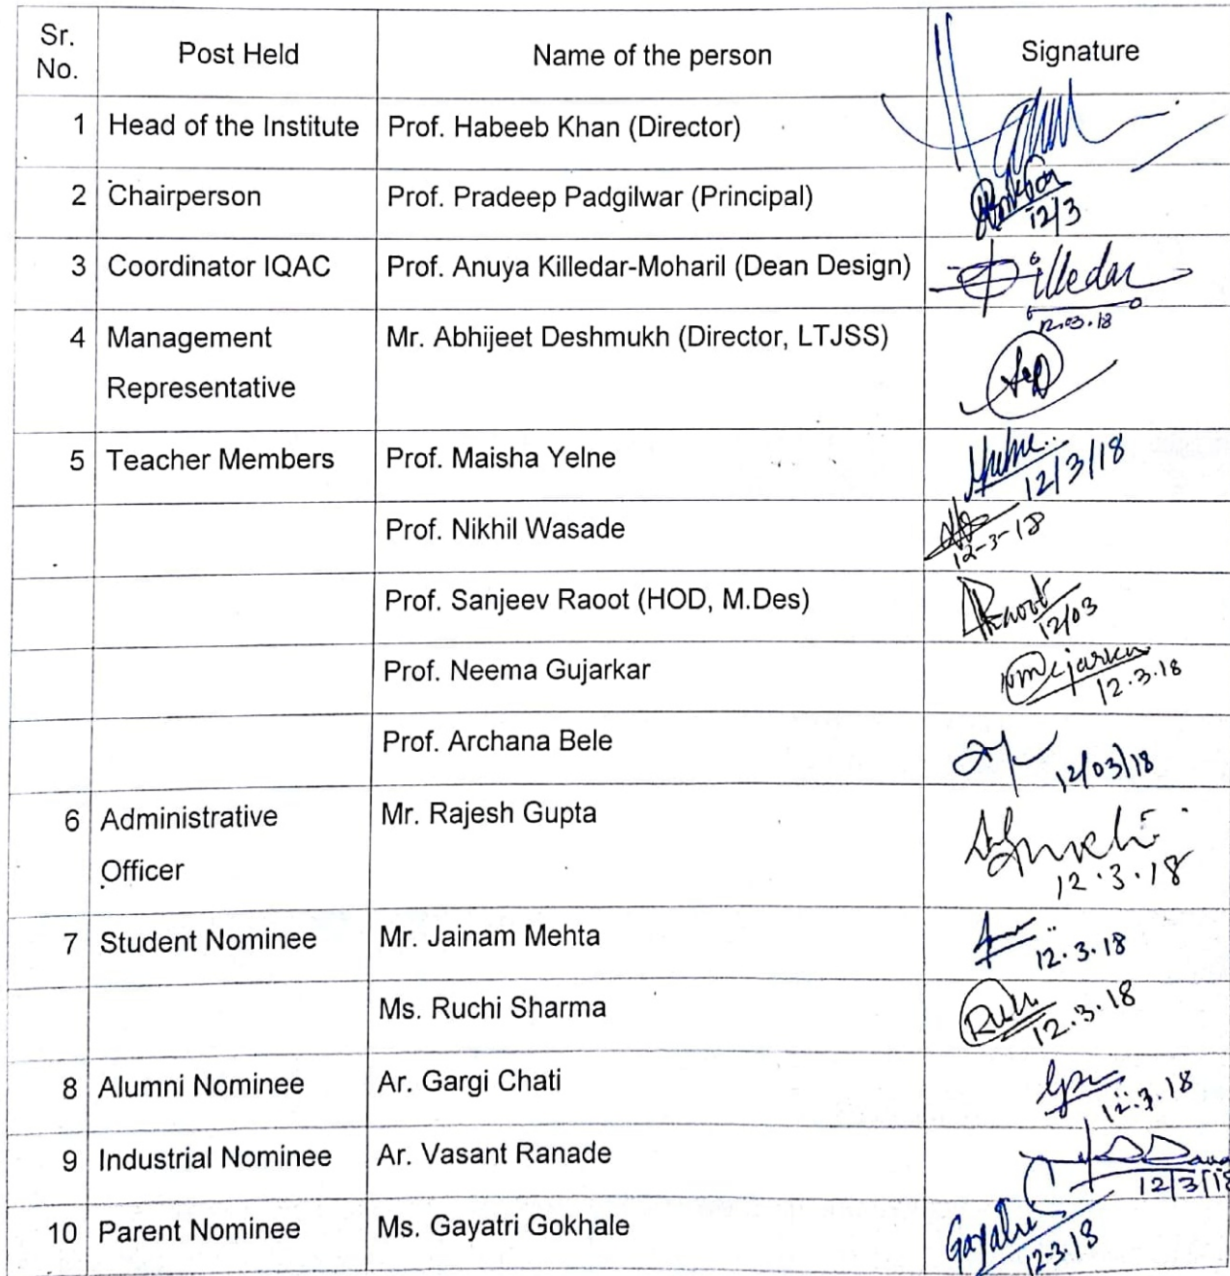 Sr. No. Post Held Name of the person Signature
1 Head of the Institute Prof. Habeeb Khan (Director)
2 Chairperson Prof. Pradeep Padgilwar (Principal) 12/3
3 Coordinator IQAC Prof. Anuya Killedar-Moharil (Dean Design) Killedar
12.03.18
4 Management Mr. Abhijeet Deshmukh (Director, LTJSS)
Representative
5 Teacher Members Prof. Maisha Yelne 12/3/18
Prof. Nikhil Wasade 12-3-18
Prof. Sanjeev Raoot (HOD, M.Des) Raoot 12/03
Prof. Neema Gujarkar 12.3.18
Prof. Archana Bele 12/03/18
6 Administrative Mr. Rajesh Gupta
Officer 12.3.18
7 Student Nominee Mr. Jainam Mehta 12.3.18
Ms. Ruchi Sharma 12.3.18
8 Alumni Nominee Ar. Gargi Chati 12.3.18
9 Industrial Nominee Ar. Vasant Ranade 12/3/18
10 Parent Nominee Ms. Gayatri Gokhale Gayatri
12-3-18